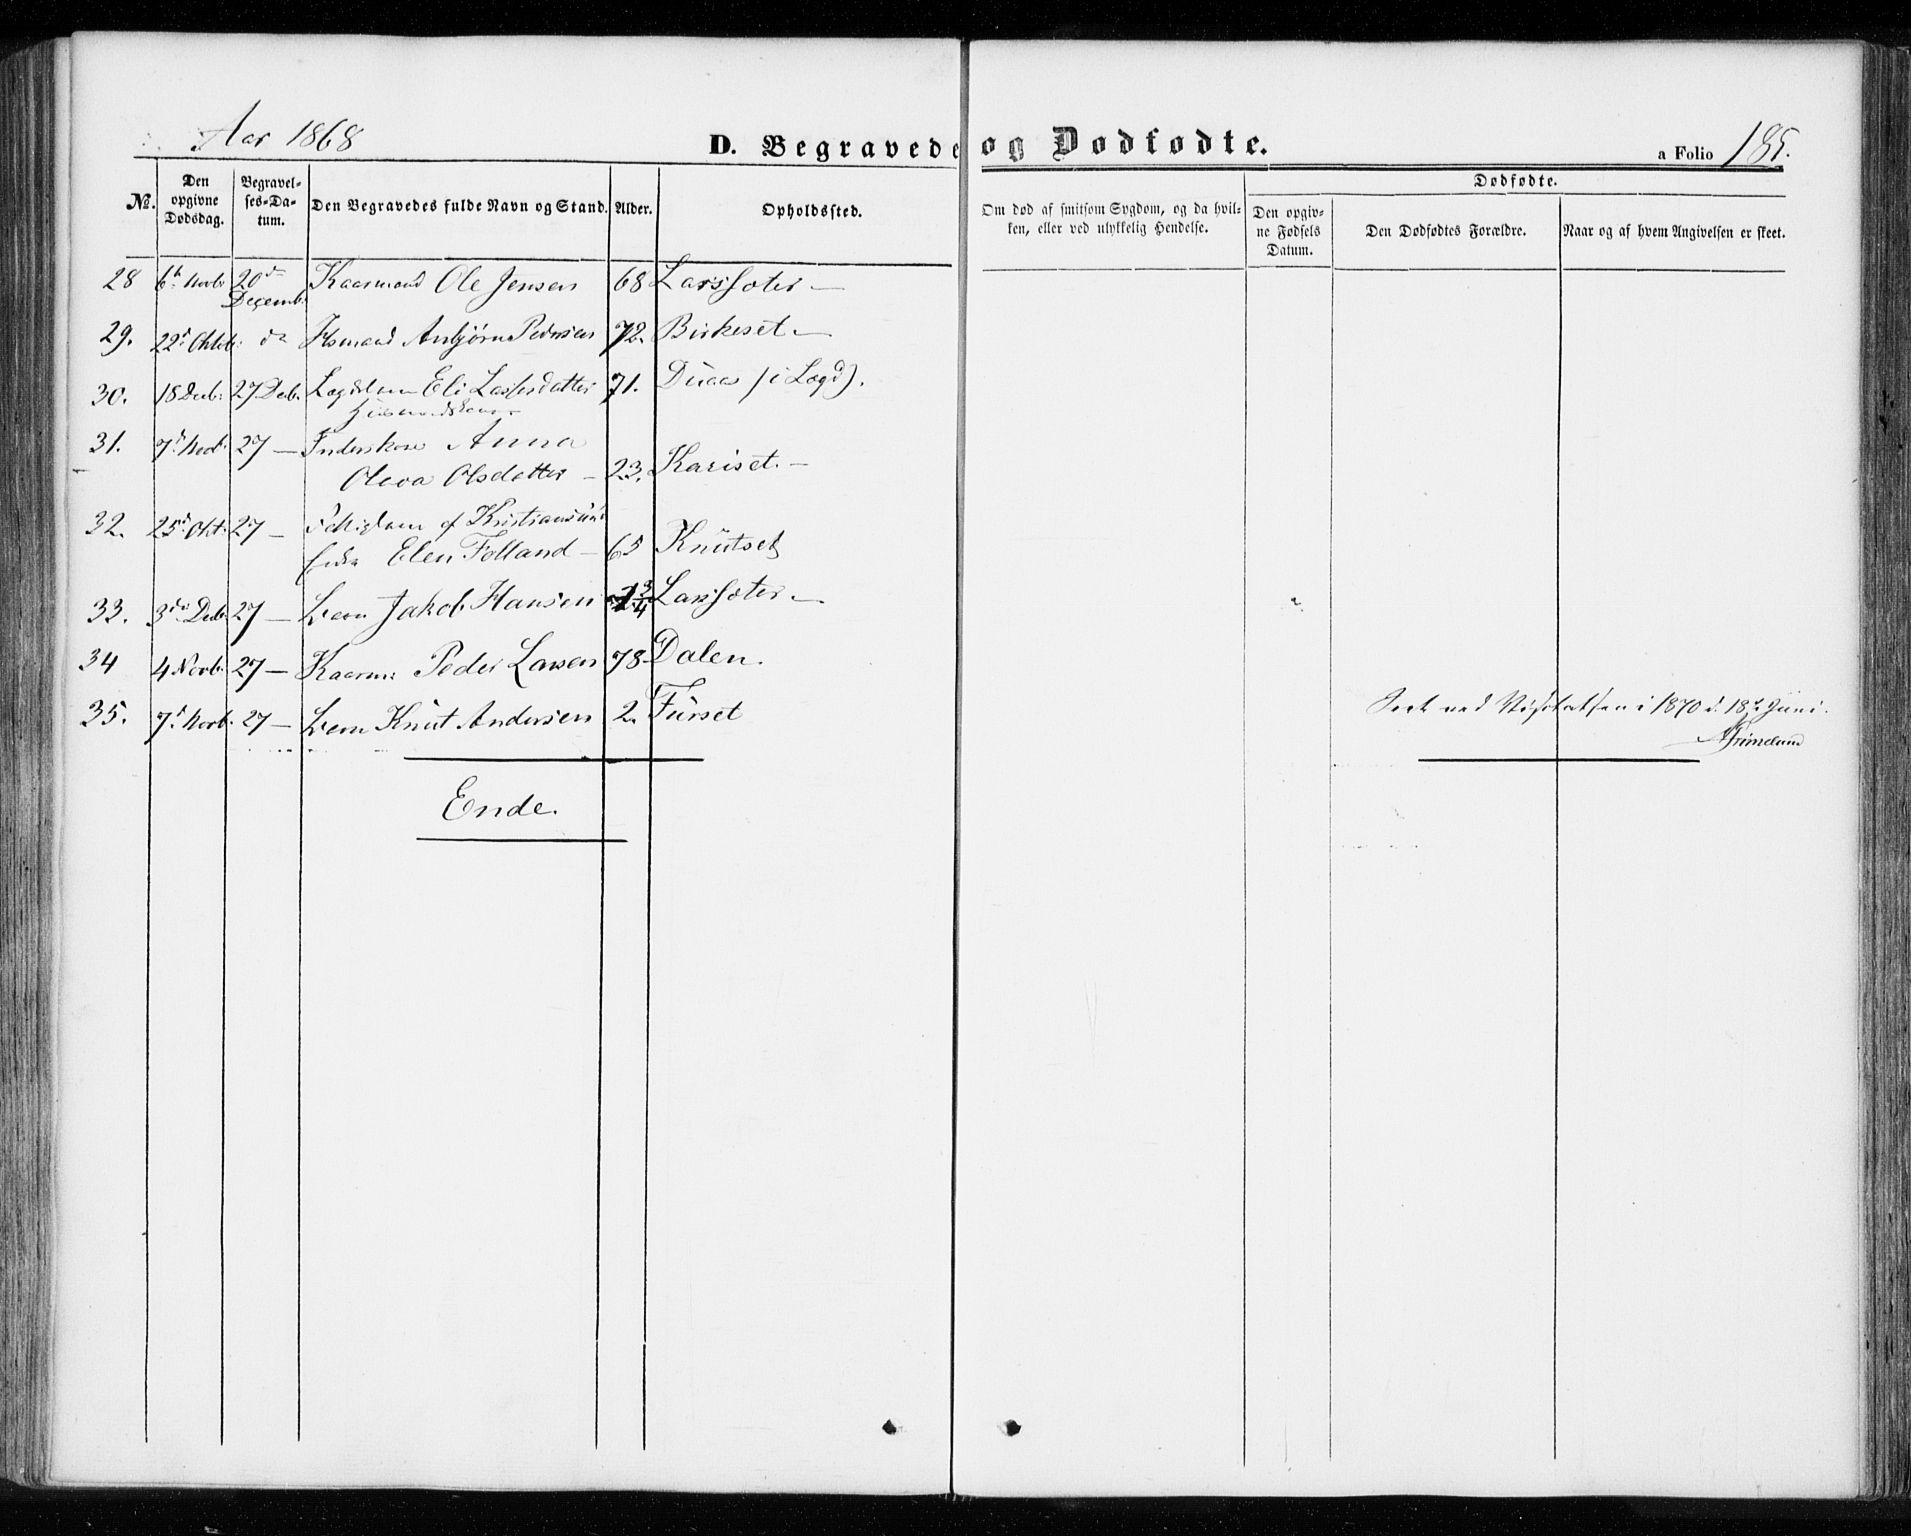 Aar 1868
D. Begravede og Dødfødte.
a Folio 185.
№.
Den opgivne Dødsdag.
Begravelses-Datum.
Den Begravedes fulde Navn og Stand.
Alder.
Opholdssted.
Om død af smitsom Sygdom, og da hvilken, eller ved ulykkelig Hendelse.
Dødfødte.
Den opgivne Fødsels Datum.
Den Dødfødtes Forældre.
Naar og af hvem Angivelsen er skeet.
28 6h Novb. 20de Decemb. Kaarmand Ole Jensen 68 Larssæter —
29. 22d Oktob. do Hsmand Anbjørn Pedersen 72. Birkeset —
30. 18 Decb. 27 Decb. Lægdslem Eli Larsdatter 71. Duaas (i Lægd).
Husmandskone
31. 7d Novb. 27 — Inderskone Anna
Olava Olsdatter — 23. Kariset. —
32. 25d Okt. 27 — af Kristiansund
Elen Folland — 65 Knutset
33. 3de Decb. 27 — Barn Jakob Hansen 1 3/4 Larssæter —
34 4 Novb. 27 — Kaarm. Peder Larsen 78 Dalen.
35. 7d Novb. 27 — Barn Knut Andersen 2. Furset
Seet ved Visitatsen i 1870 d. 18de Juni.
AGrimelund
Ende.